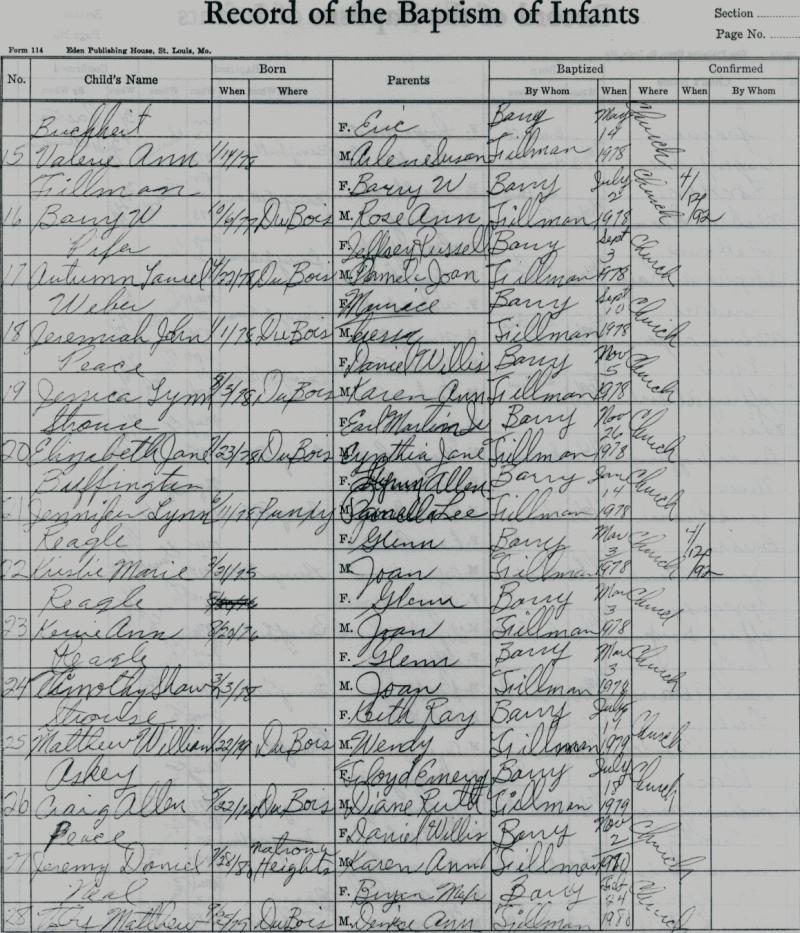 Record of the Baptism of Infants
Section
Page No.
Form 114 Eden Publishing House, St. Louis, Mo.
No. Child's Name Born Parents Baptized Confirmed
When Where By Whom When Where When By Whom
Buchheit F. Eric Barry May 14 Church
15 Valerie Ann 1/14/78 M. Arlene Susan Fillman 1978
Fillman F. Barry W Barry July 2 Church 4/12/92
16 Barry W DuBois M. Rose Ann Fillman 1978
Pifer F. Jeffrey Russel Barry Sept 3 Church
17 Autumn Laurel DuBois M. Pamela Joan Fillman 1978
Weber F. Barry Sept 10 Church
18 Jeremiah John DuBois M. Fillman 1978
Peace F. Daniel Willis Barry Nov 5 Church
19 Jessica Lynn DuBois M. Karen Ann Fillman 1978
Strouse F. Earl Martin Jr Barry Nov 26 Church
20 Elizabeth Jane DuBois M. Cynthia Jane Fillman 1978
Buffington F. Allen Barry 14 Church
21 Jennifer Lynn M. Lee Fillman 1978
Reagle F. Glenn Barry Mar 3 Church 4/12/92
22 Kristie Marie M. Joan Fillman 1978
Reagle F. Glenn Barry Mar 3 Church
23 Ann M. Joan Fillman 1978
Reagle F. Glenn Barry Mar 3 Church
24 Timothy Shaw M. Joan Fillman 1978
Strouse F. Keith Ray Barry July Church
25 Matthew William DuBois M. Wendy Fillman 1979
Askey F. Floyd Emery Barry July 18 Church
26 Craig Allen DuBois M. Diane Ruth Fillman 1979
Peace F. Daniel Willis Barry Nov 2 Church
27 Jeremy Daniel Heights M. Karen Ann Fillman
Neal F. Barry 24 Church
28 Matthew DuBois M. Denise Ann Fillman 1980